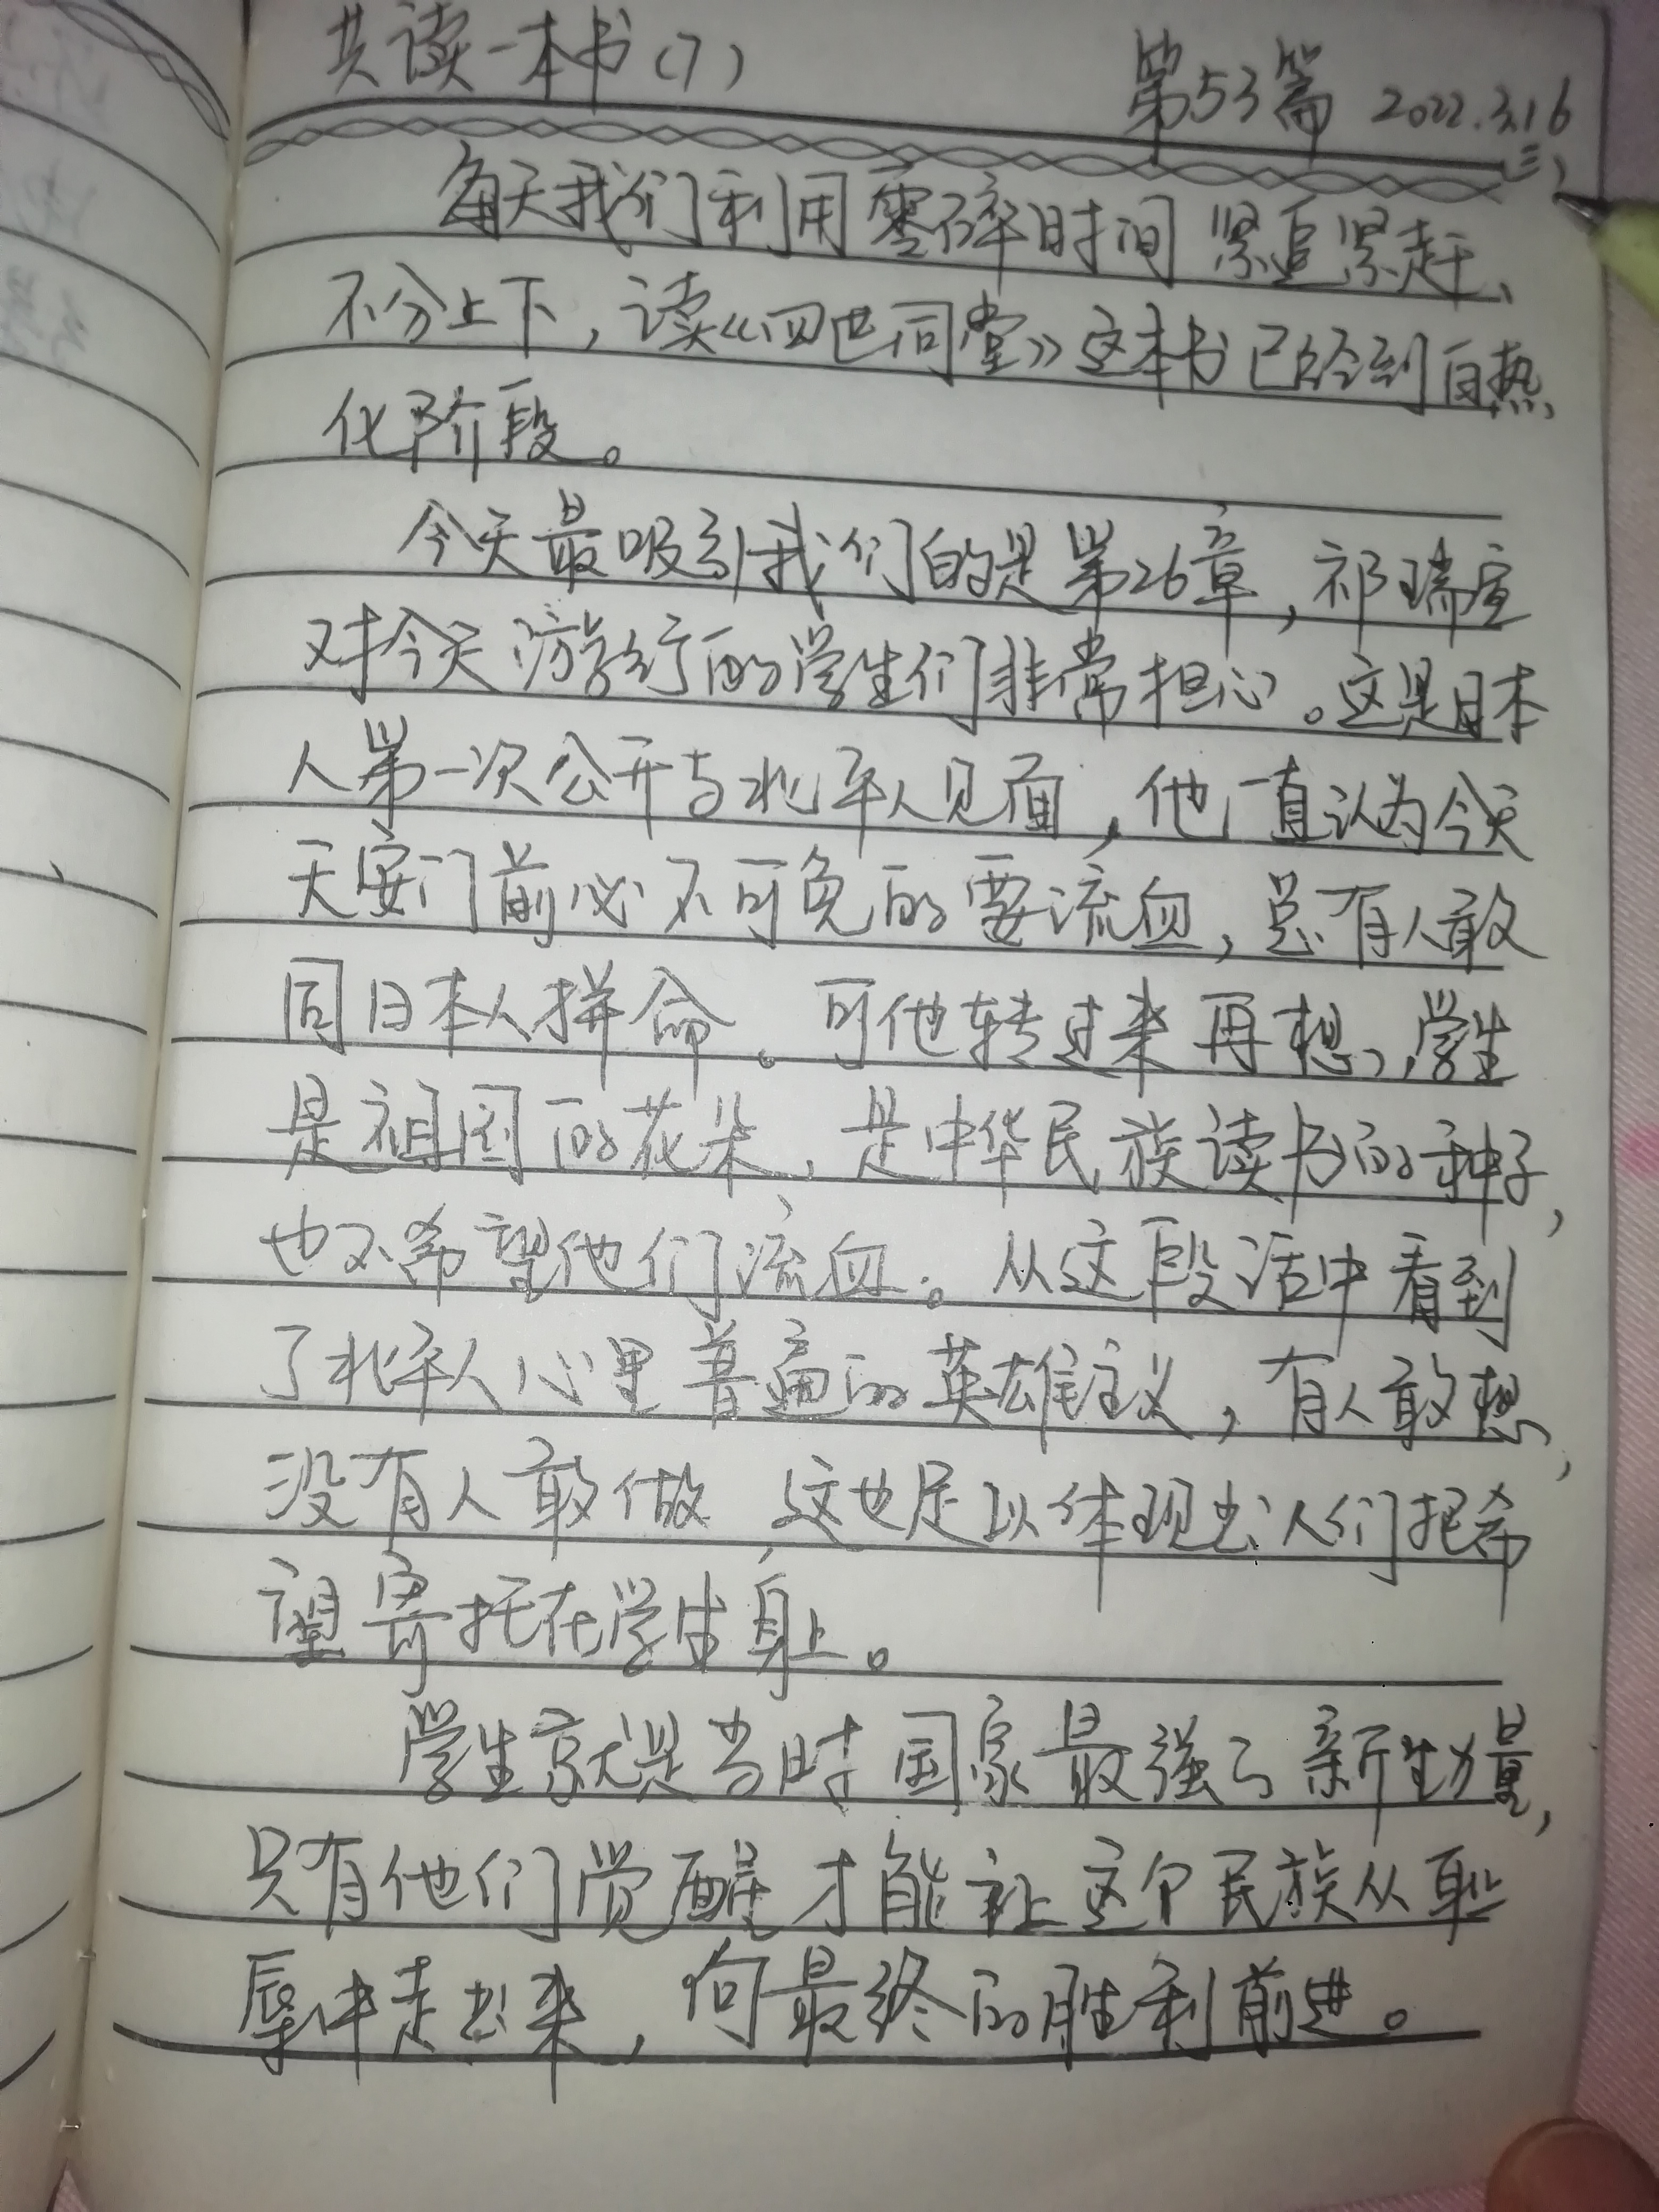 共读一本书(7)
第53篇 2022.3.16
(三)
每天我们利用零碎时间紧追紧赶、
不分上下，读《四世同堂》这本书已经到白热
化阶段。
今天最吸引我们的是第26章，祁瑞宣
对今天游行的学生们非常担心。这是日本
人第一次公开与北平人见面，他一直认为今天
天安门前必不可免的要流血，总有人敢
同日本人拼命。可他转过来再想，学生
是祖国的花朵，是中华民族读书的种子，
也不希望他们流血。从这段话中看到
了北平人心里普遍的英雄主义，有人敢想，
没有人敢做，这也足以体现出人们把希
望寄托在学生身上。
学生就是当时国家最强的新生力量，
只有他们觉醒才能让这个民族从耻
辱中走出来，向最终的胜利前进。